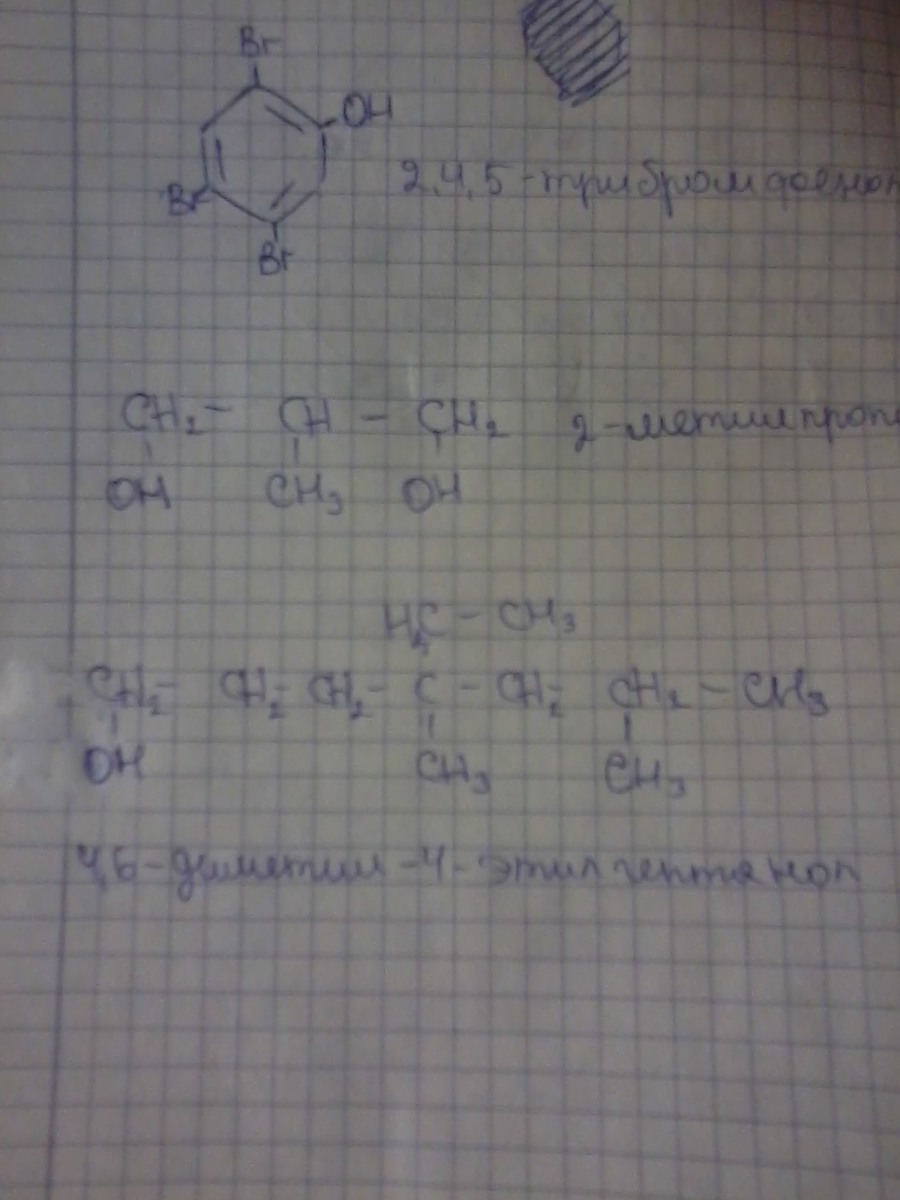 Br
OH
2,4,5-трибромфенол
Br
Br
CH₂ - CH - CH₂ 2-метилпропа
OH CH₃ OH
H₂C - CH₃
CH₂ - CH₂ - CH₂ - C - CH₂ - CH₂ - CH₃
OH CH₃ CH₃
4,6-диметил-4-этилгептанол